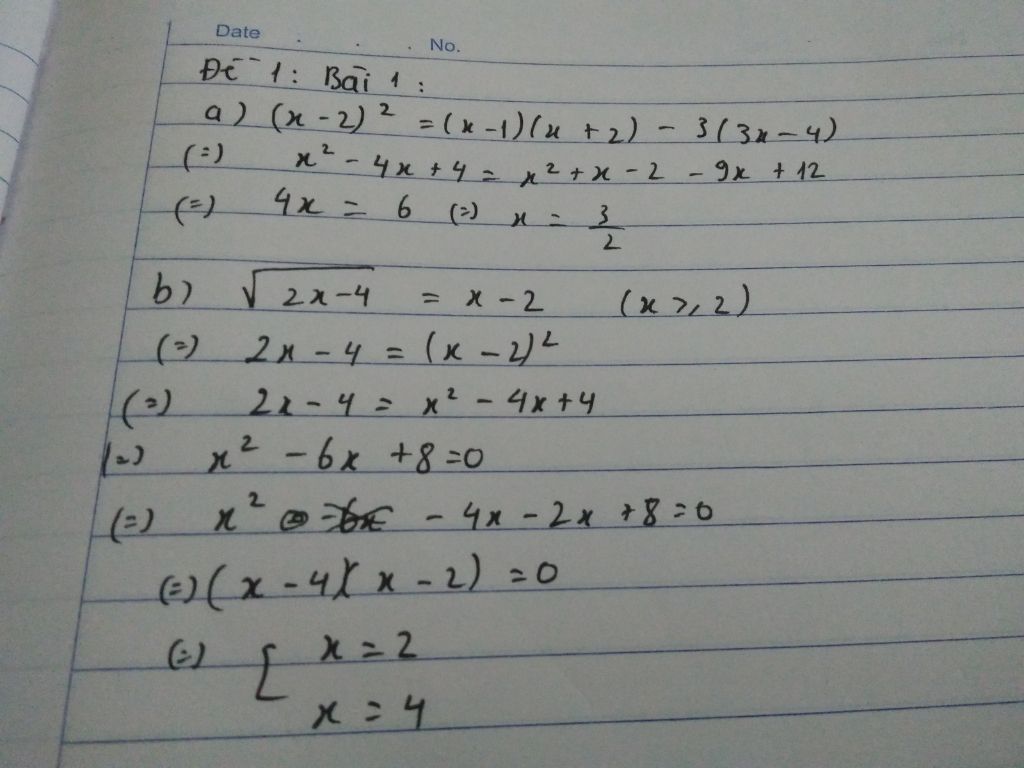 Date . . . No.
Đề 1: Bài 1:
a) (x - 2)² = (x - 1)(x + 2) - 3(3x - 4)
(=) x² - 4x + 4 = x² + x - 2 - 9x + 12
(=) 4x = 6 (=) x = 3/2
b) √(2x-4) = x - 2 (x ≥ 2)
(=) 2x - 4 = (x - 2)²
(=) 2x - 4 = x² - 4x + 4
(=) x² - 6x + 8 = 0
(=) x² - 4x - 2x + 8 = 0
(=) (x - 4)(x - 2) = 0
(=) [ x = 2
x = 4